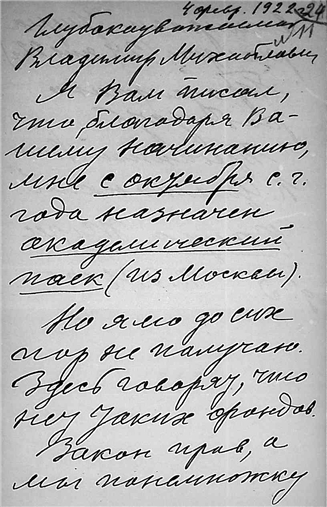 4 февр. 1922 г. 24
Глубокоуважаемый
Владимир Михайлович
Я Вам писал,
что, благодаря Ва-
шему начинанию,
мне с октября с. г.
года назначен
академический
паек (из Москвы).
Но я его до сих
пор не получаю.
Здесь говорят, что
нет таких фондов.
Закон прав, а
мы понемножку